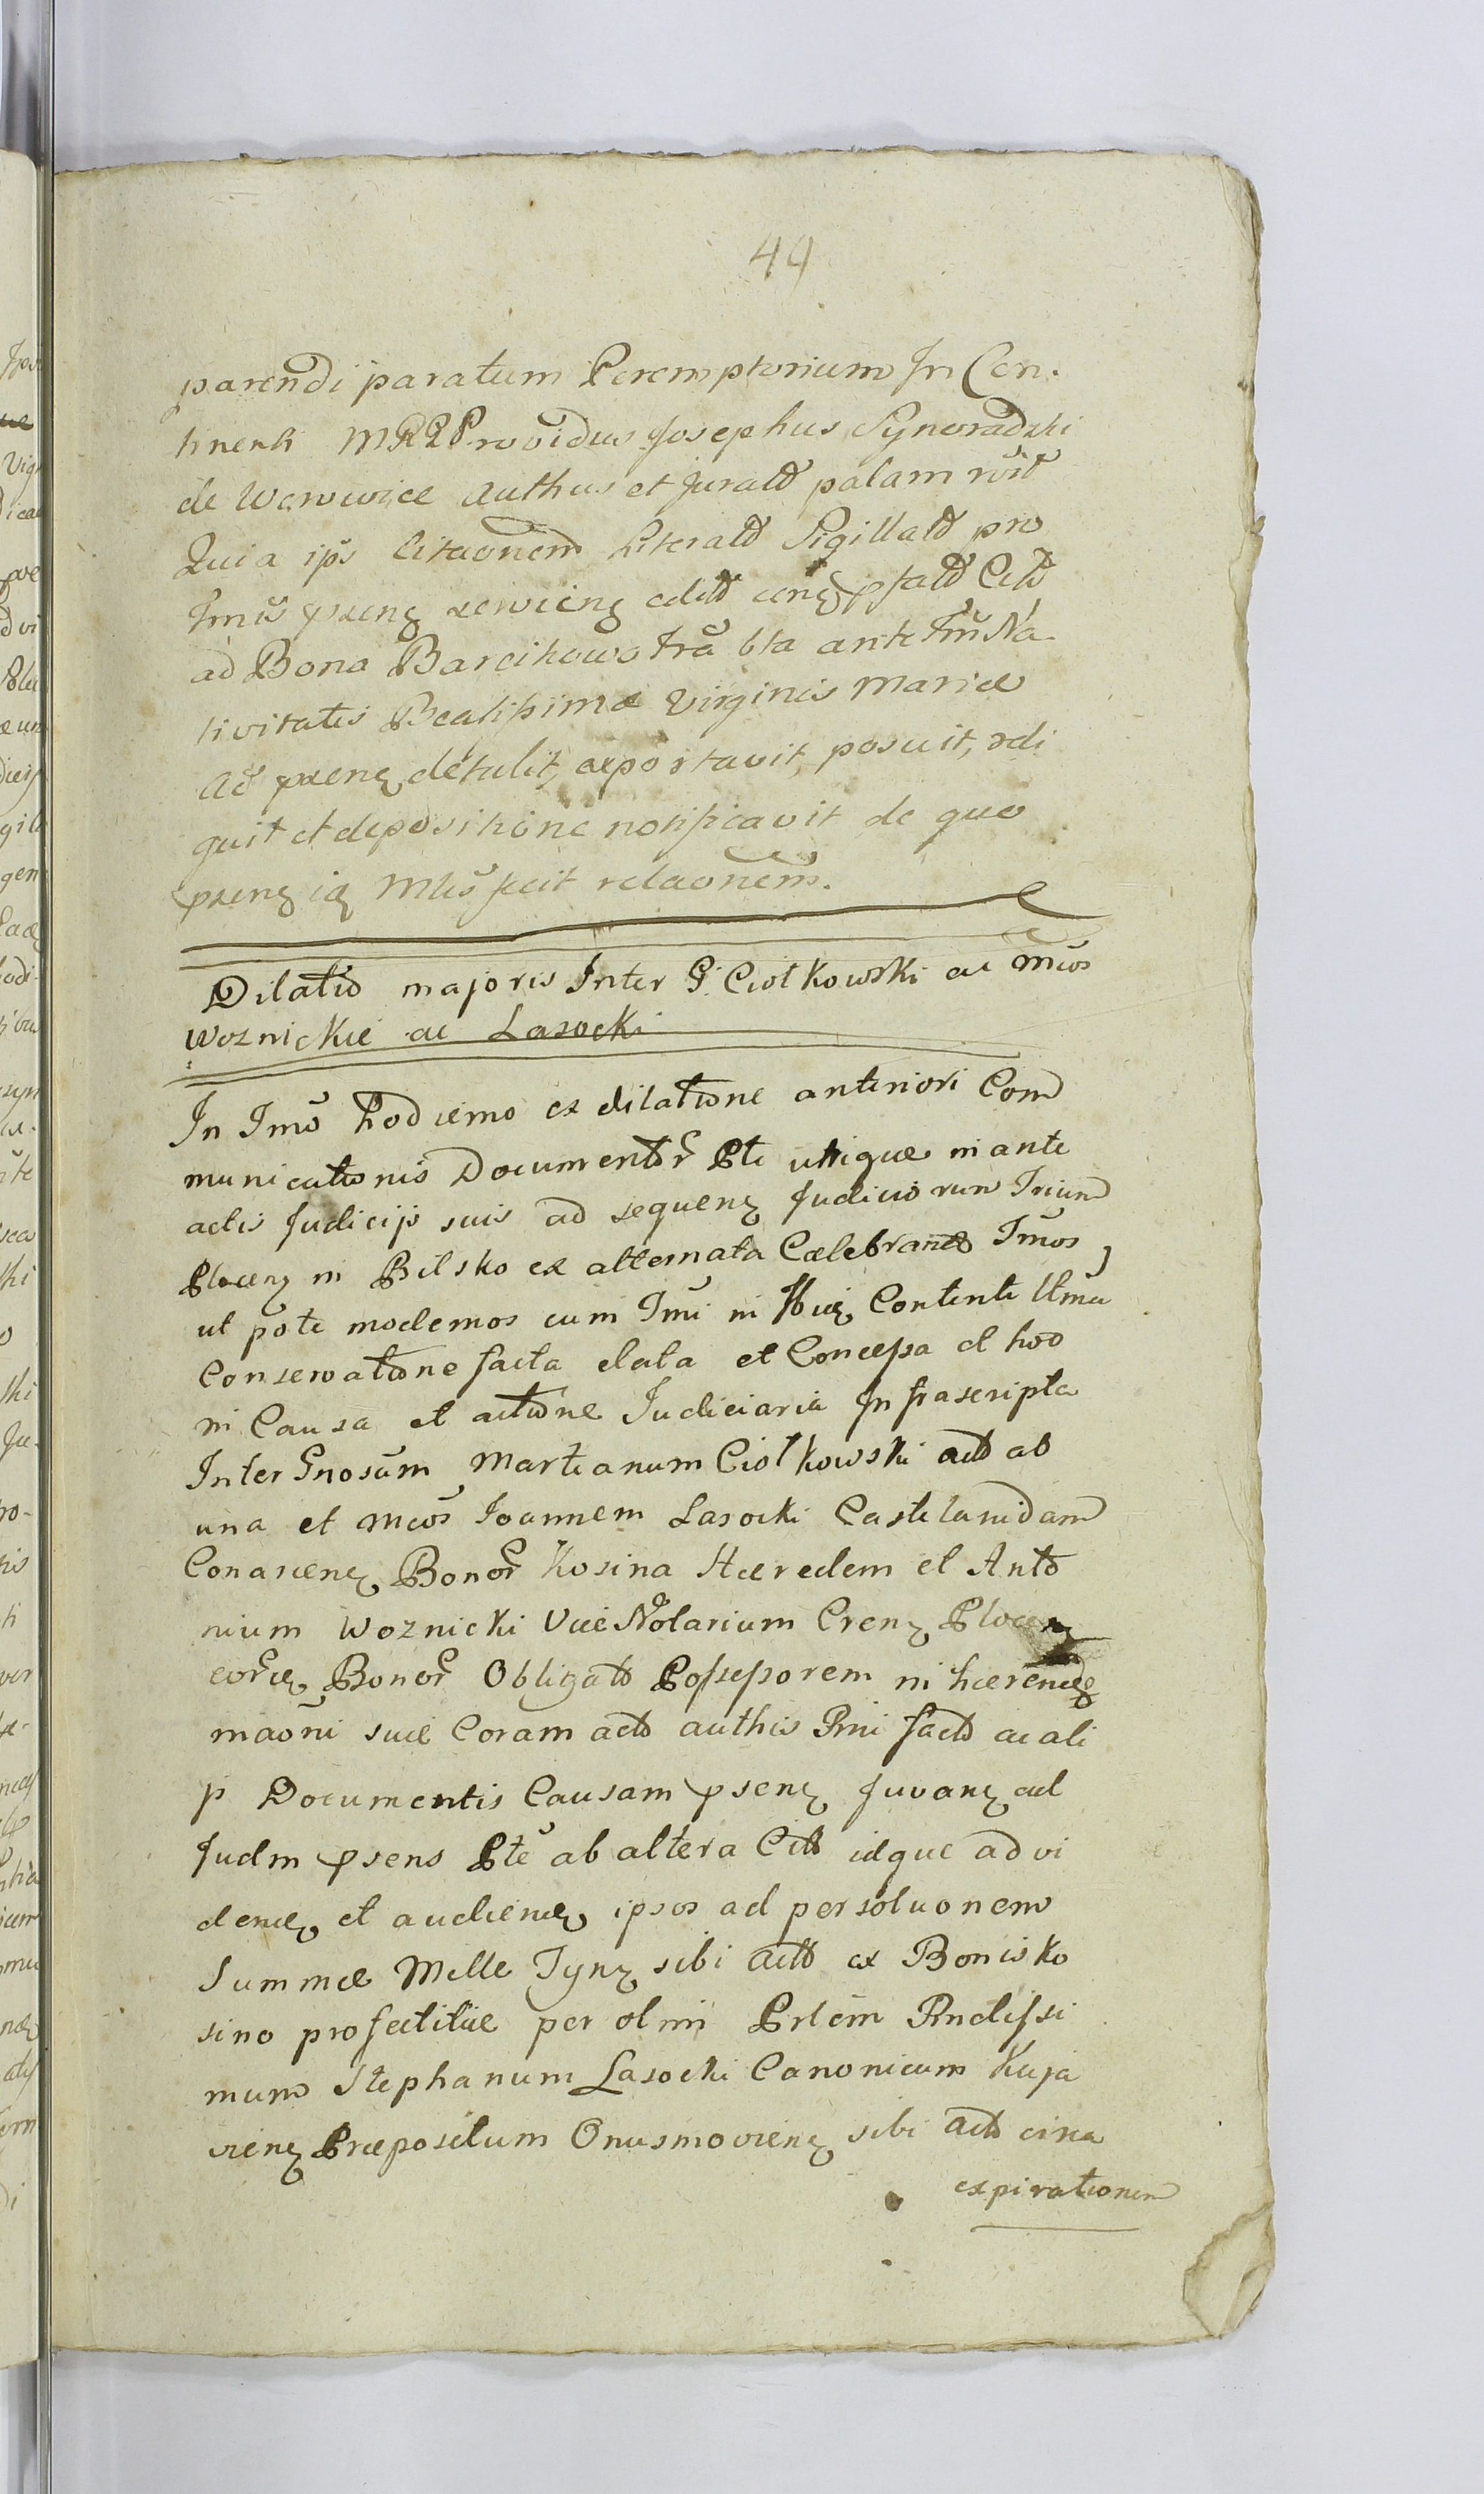 49
parendi paratum Peremptorium In Con.
tinenti MRLProvidus Josephus Synoradzki
de Worowice Authus et Jurato palam
Quia ips Citaonem Literato Sigillato pro
Tmis praeng servieng edito
ad Bona Barcikowo fra bta ante Tm Na
tivitatis Beatissimae Virginis Mariae
Ao praeng detulit, aeportavit, posuit, reli
quit et depositione notificavit de quo
praeng iq feit relaonem.
Dilatio majoris Inter G Ciołkowski ac Mcos
Woznickie ac Lasocki
In Tmo hodierno ex dilatione anteriori Com
municationis Documentor Pte utrique in ante
actis Judicijs suis ad sequeng Judiciorum Trium
Placeng in Bilsko ex alternata Caelebrando Tmos
ut pote modernos cum Tmi in Hucq Contenti Utma
Conservatione facta elata et Concessa et hoo
in Causa et actione Judiciaria Infrascripta
Inter Gnosum Martianum Ciołkowski acto ab
una et Mcos Joannem Lasocki Castelanidam
Conarieng Bonor Kosina Haeredem et Anto
nium Woznicki Vice Notarium Creng Ploceng
eorq Bonor Obligato Possessorem in haerendo
maoni suae Coram acto authis Rni facto ac ali
js Documentis Causam pseng Juvang ad
Judm psens Pte ab altera Cito idque ad vi
dendq et audiendq ipsos ad persoluonem
Summae Mille Tyng sibi acto ex Bonis Ko
sino profectitiae per olim Prlem Rndissi
mum Stephanum Lasocki Canonicum Kuja
vieng Praepositum Onusmovieng sibi acto circa
expirationem